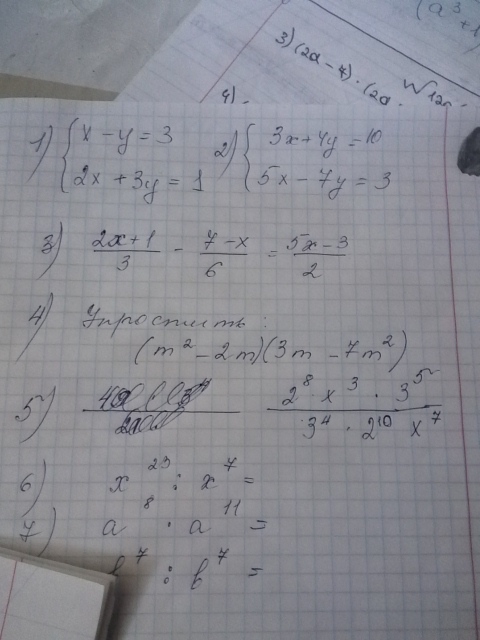 (a³ + 1)
3) (2a - 7) · (2a
4)
1) { x - y = 3
2x + 3y = 1
2) { 3x + 4y = 10
5x - 7y = 3
3) (2x + 1)/3 - (7 - x)/6 = (5x - 3)/2
4) Упростить:
(m² - 2m)(3m - 7m²)
5) (2⁸ · x³ · 3⁵)/(3⁴ · 2¹⁰ x⁷)
6) x²³ : x⁷ =
7) a⁸ · a¹¹ =
b⁷ : b⁷ =